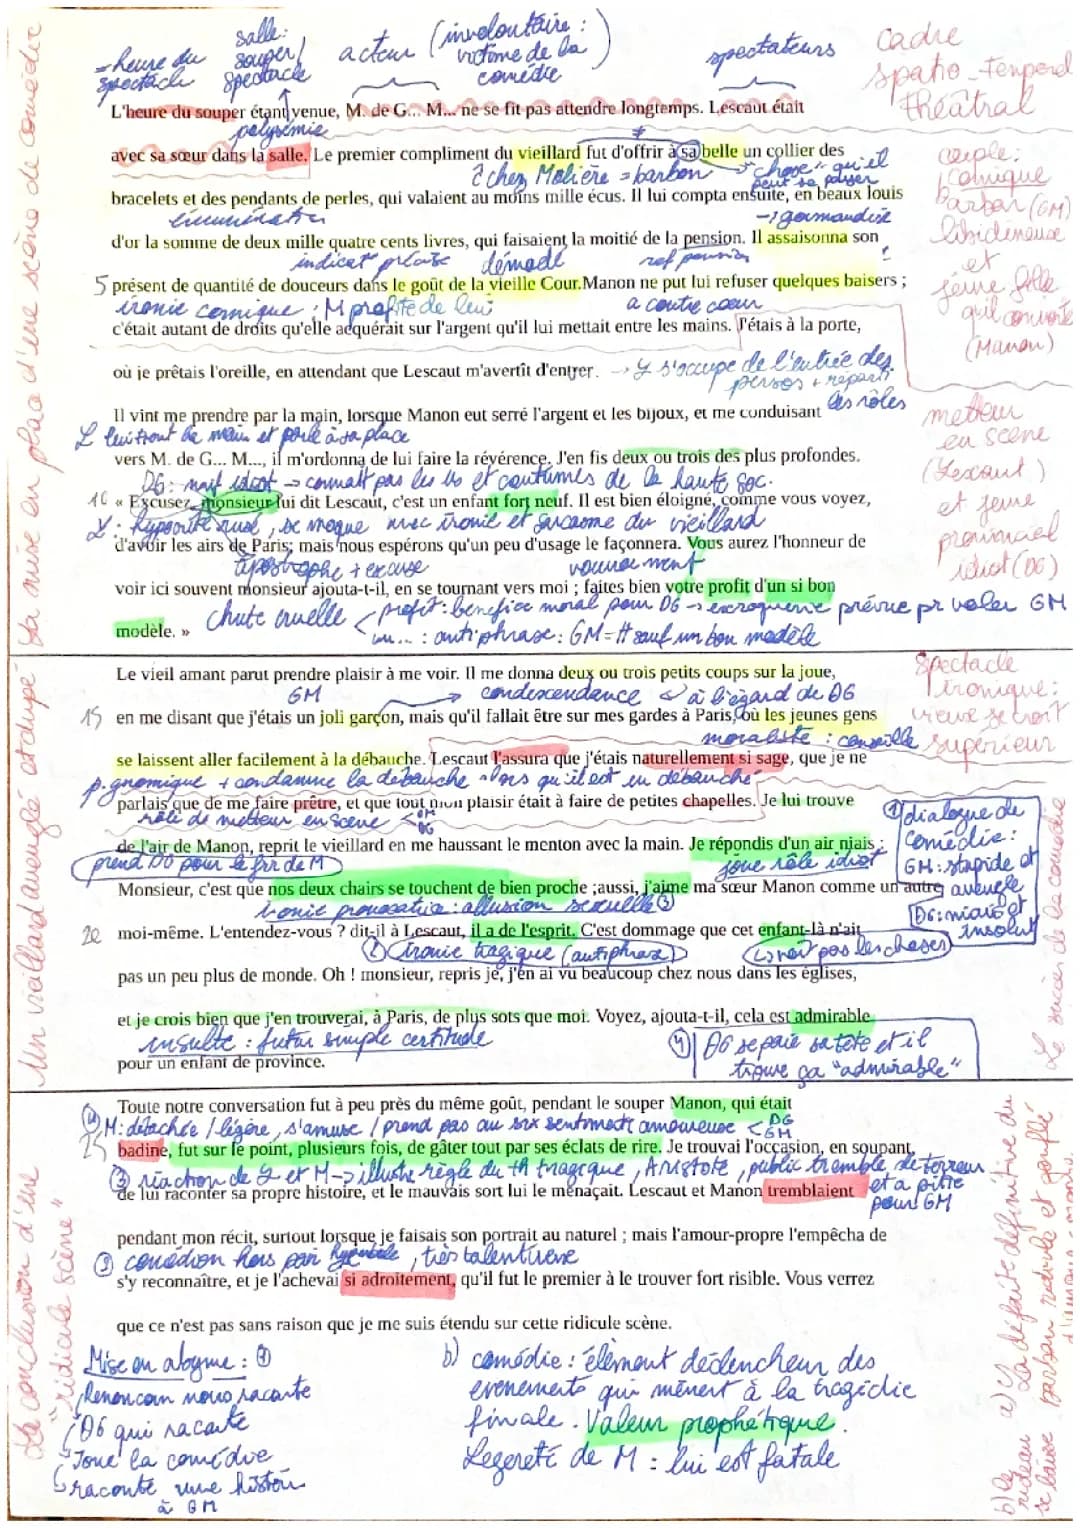 =heure du spectacle
salle: souper/ spectacle
acteur (involontaire : victime de la comédie)
spectateurs
Cadre spatio-temporel théâtral
L'heure du souper étant venue, M. de G... M... ne se fit pas attendre longtemps. Lescaut était
polysémie
avec sa sœur dans la salle. Le premier compliment du vieillard fut d'offrir à sa belle un collier des
chez Molière = barbon
"chose" qu'il peut se
bracelets et des pendants de perles, qui valaient au moins mille écus. Il lui compta ensuite, en beaux louis
énumération
→ gourmandise
d'or la somme de deux mille quatre cents livres, qui faisaient la moitié de la pension. Il assaisonna son
démodé
ref pension
5 présent de quantité de douceurs dans le goût de la vieille Cour.Manon ne put lui refuser quelques baisers ;
ironie comique : M profite de lui
a contre cœur
c'était autant de droits qu'elle acquérait sur l'argent qu'il lui mettait entre les mains. J'étais à la porte,
couple: comique barbon (GM) libidineuse et jeune fille qu'il convoite (Manon)
où je prêtais l'oreille, en attendant que Lescaut m'avertît d'entrer.
→ L s'occupe de l'entrée des persos + réparti les rôles
Il vint me prendre par la main, lorsque Manon eut serré l'argent et les bijoux, et me conduisant
L lui tient la main et parle à sa place
vers M. de G... M..., il m'ordonna de lui faire la révérence. J'en fis deux ou trois des plus profondes.
DG: naïf idiot → connaît pas les us et coutumes de la haute soc.
10 « Excusez, monsieur lui dit Lescaut, c'est un enfant fort neuf. Il est bien éloigné, comme vous voyez,
L: hypocrite rusé, se moque avec ironie et sarcasme du vieillard
d'avoir les airs de Paris; mais nous espérons qu'un peu d'usage le façonnera. Vous aurez l'honneur de
apostrophe + excuse
vouvoiement
voir ici souvent monsieur ajouta-t-il, en se tournant vers moi ; faites bien votre profit d'un si bon
Chute cruelle
profit: bénéfice moral pour DG → escroquerie prévue pr voler GM
modèle. »
un... : antiphrase: GM = tt sauf un bon modèle
metteur en scène (Lescaut) et jeune provincial idiot (DG)
La mise en place d'une scène de comédie
Le vieil amant parut prendre plaisir à me voir. Il me donna deux ou trois petits coups sur la joue,
GM
condescendance
à l'égard de DG
15 en me disant que j'étais un joli garçon, mais qu'il fallait être sur mes gardes à Paris, où les jeunes gens
moraliste : conseille
se laissent aller facilement à la débauche. Lescaut l'assura que j'étais naturellement si sage, que je ne
p. gnomique + condamne la débauche alors qu'il est en débauché
parlais que de me faire prêtre, et que tout mon plaisir était à faire de petites chapelles. Je lui trouve
rôle de metteur en scène < GM DG
de l'air de Manon, reprit le vieillard en me haussant le menton avec la main. Je répondis d'un air niais :
prend DG pour le frr de M
joue rôle idiot
Monsieur, c'est que nos deux chairs se touchent de bien proche ;aussi, j'aime ma sœur Manon comme un autre
ironie provocatrice : allusion sexuelle ③
20 moi-même. L'entendez-vous ? dit-il à Lescaut, il a de l'esprit. C'est dommage que cet enfant-là n'ait
② ironie tragique (antiphrase)
voit pas les choses
pas un peu plus de monde. Oh ! monsieur, repris je, j'en ai vu beaucoup chez nous dans les églises,
et je crois bien que j'en trouverai, à Paris, de plus sots que moi. Voyez, ajouta-t-il, cela est admirable
insulte : futur simple certitude
pour un enfant de province.
④ DG se paie sa tête et il trouve ça "admirable"
Spectacle ironique: vieux se croit supérieur
① dialogue de comédie: GM: stupide et aveugle DG: niais et insolent
Un vieillard aveuglé et dupé
Le succès de la comédie
Toute notre conversation fut à peu près du même goût, pendant le souper Manon, qui était
④ M: détachée / légère, s'amuse / prend pas au srx sentiments amoureuse < DG GM
25 badine, fut sur le point, plusieurs fois, de gâter tout par ses éclats de rire. Je trouvai l'occasion, en soupant,
③ réaction de L et M → illustre règle du th tragique, Aristote, public tremble de terreur et a pitié pour GM
de lui raconter sa propre histoire, et le mauvais sort lui le ménaçait. Lescaut et Manon tremblaient
pendant mon récit, surtout lorsque je faisais son portrait au naturel ; mais l'amour-propre l'empêcha de
② comédien hors pair, très talentueux
s'y reconnaître, et je l'achevai si adroitement, qu'il fut le premier à le trouver fort risible. Vous verrez
que ce n'est pas sans raison que je me suis étendu sur cette ridicule scène.
Mise en abyme : ①
Renoncour nous raconte
DG qui raconte
Joue la comédie
raconte une histoire à GM
b) comédie : élément déclencheur des
evenements qui mènent à la tragédie
finale. Valeur prophétique.
Legereté de M : lui est fatale
La conclusion d'une "ridicule scène"
a) La défaite définitive du barbon ridicule et
b) le rideau se baisse